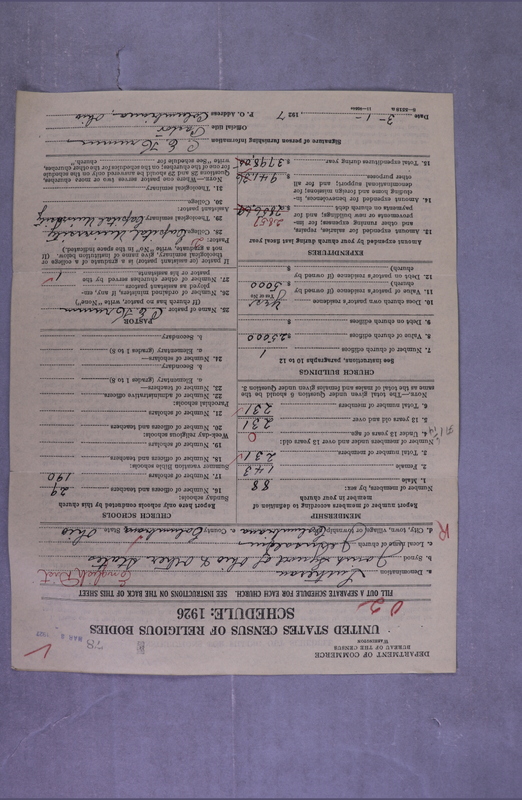 DEPARTMENT OF COMMERCE
BUREAU OF THE CENSUS
WASHINGTON
UNITED STATES CENSUS OF RELIGIOUS BODIES
SCHEDULE: 1926
FILL OUT A SEPARATE SCHEDULE FOR EACH CHURCH. SEE INSTRUCTIONS ON THE BACK OF THIS SHEET
a. Denomination Lutheran
b. Synod Joint Synod of Ohio & other States
English Dist
c. Local name of church Jerusalem
d. City, town, village, or township Columbiana e. County Columbiana State Ohio
MEMBERSHIP
Report number of members according to definition of member in your church
Number of members, by sex:
1. Male 88
2. Female 143
3. Total number of members 231
Number of members under and over 13 years old:
4. Under 13 years of age 0
5. 13 years old and over 231
6. Total number of members 231
NOTE.—The total given under Question 6 should be the same as the total of males and females given under Question 3.
CHURCH BUILDINGS
See instructions, paragraphs 10 to 12
7. Number of church edifices 1
8. Value of church edifices $ 25000
9. Debt on church edifices $
10. Does church own pastor's residence Yes
Yes or No
11. Value of pastor's residence (if owned by church) $ 5000
12. Debt on pastor's residence (if owned by church) $
EXPENDITURES
Amount expended by your church during last fiscal year
13. Amount expended for salaries, repairs, and other running expenses; for improvements or new buildings; and for payments on church debt
14. Amount expended for benevolences, including home and foreign missions; for denominational support; and for all other purposes
15. Total expenditures during year
CHURCH SCHOOLS
Report here only schools conducted by this church
Sunday schools:
16. Number of officers and teachers 29
17. Number of scholars 190
Summer vacation Bible schools:
18. Number of officers and teachers
19. Number of scholars
Week-day religious schools:
20. Number of officers and teachers
21. Number of scholars
Parochial schools:
22. Number of administrative officers
23. Number of teachers—
a. Elementary (grades 1 to 8)
b. Secondary
24. Number of scholars—
a. Elementary (grades 1 to 8)
b. Secondary
PASTOR
25. Name of pastor
(If church has no pastor, write "None")
26. Number of ordained ministers, if any, employed as assistant pastors
27. Number of other churches served by the pastor or his assistants 1
If pastor (or assistant) is a graduate of a college or theological seminary, give name of institution. (If not a graduate, write "No" in the space indicated.)
Pastor:
28. College Capital University
29. Theological seminary Capital University
Assistant pastor:
30. College
31. Theological seminary
NOTE.—Where one pastor serves two or more churches, Questions 28 and 29 should be answered only on the schedule for one of the churches; on the schedules for the other churches, write "See schedule for church."
Signature of person furnishing information
Official title Pastor
Date 3-1- 1927 P. O. Address Columbiana, Ohio